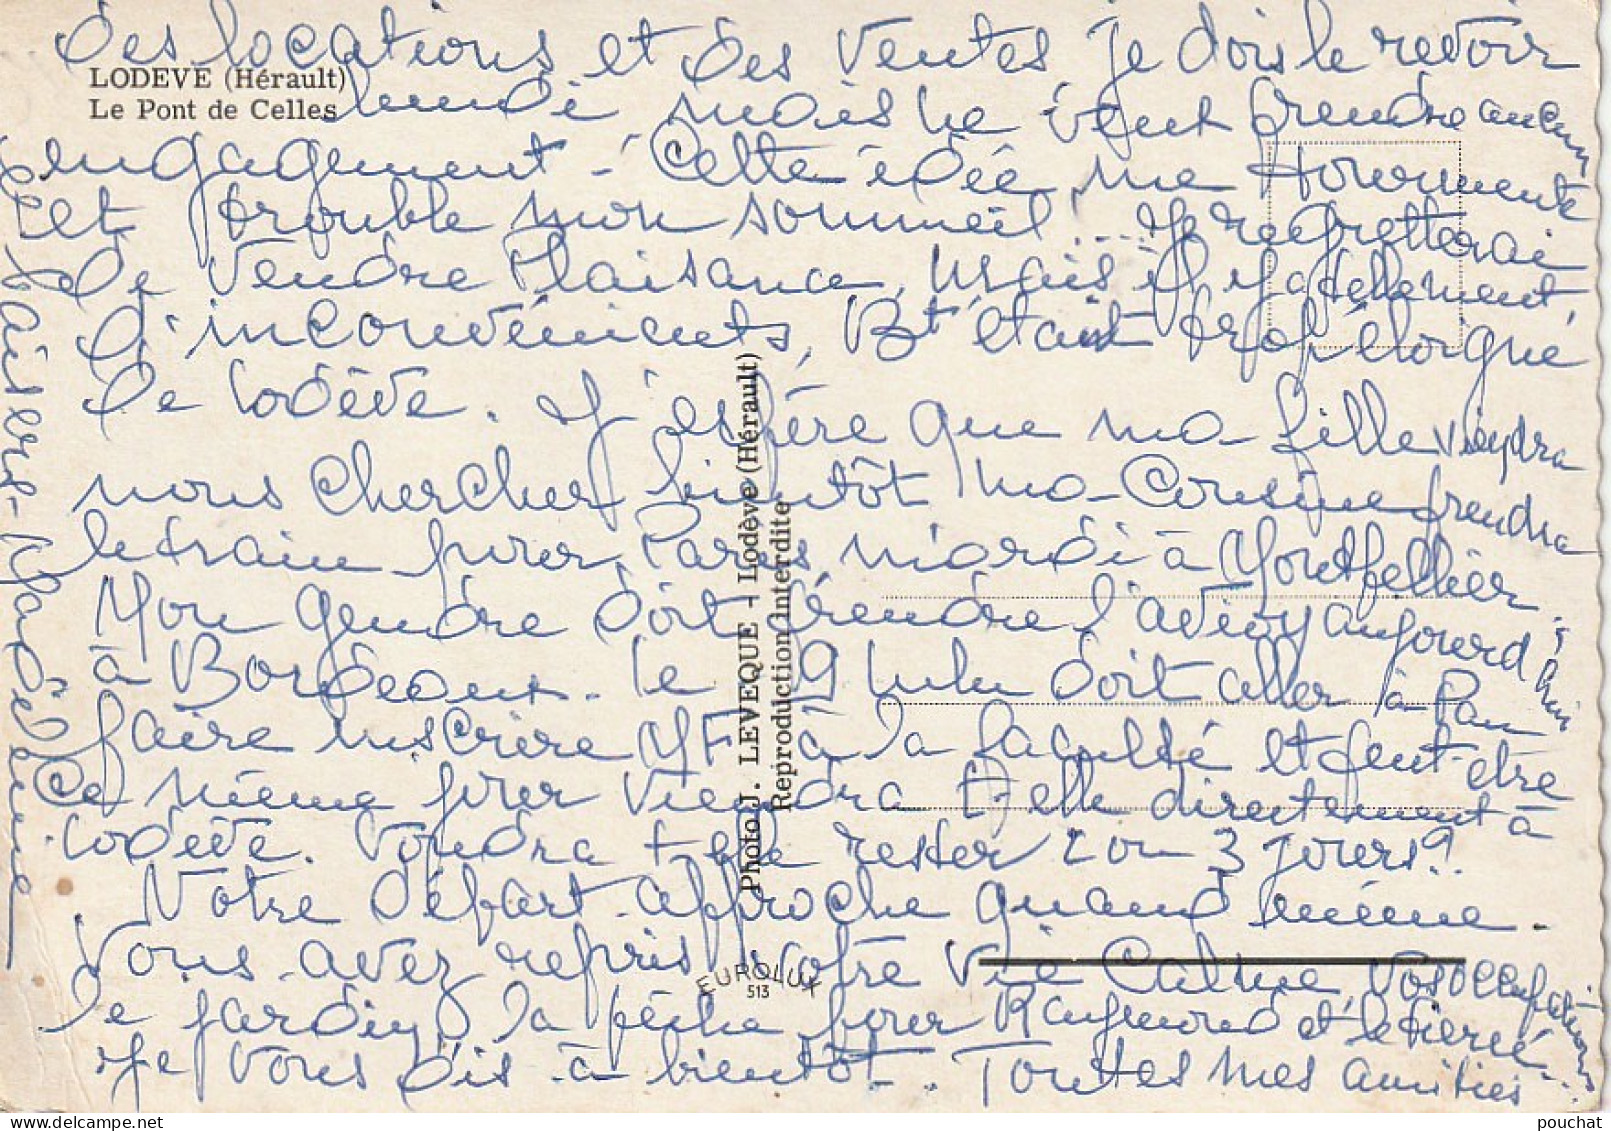 des locations et des ventes, je dois le revoir
LODEVE (Hérault)
Le Pont de Celles
lundi mais ne veut prendre aucun
engagement - Cette idée me tourmente
et trouble mon sommeil. Je regretterai
de vendre Plaisance, mais il y a tellement
d'inconvénients, Bt étant trop éloigné
de Lodève. J'espère que ma fille viendra
nous chercher bientôt ma Cousine prendra
le train pour Paris mardi à Montpellier.
Mon gendre doit prendre l'avion aujourd'hui
à Bordeaux. le 19 Lulu doit aller à Pau
faire inscrire YF à la faculté et peut-être
ce même jour viendra t-elle directement à
Lodève. Voudra t-elle rester 2 ou 3 jours?
Votre départ approche quand même.
Vous avez repris votre vie calme, vos occupations
le jardin, la pêche pour Raymond et le tiercé...
Je vous dis à bientôt. Toutes mes amitiés
Baisers - Madeleine
Photo J. LEVEQUE - Lodève (Hérault)
Reproduction Interdite
EUROLUX
513
pouchat